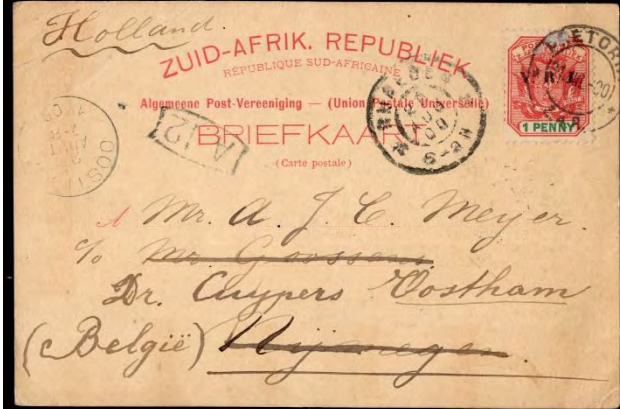 Holland
ZUID-AFRIK. REPUBLIEK
REPUBLIQUE SUD-AFRICAINE
Algemeene Post-Vereeniging — (Union Postale Universelle)
BRIEFKAART
(Carte postale)
V.R.I.
1 PENNY
A12
Mr. A. J. C. Meyer.
c/o Mr Goossens
Dr. Cuypers Oostham
(België) Nijmegen.